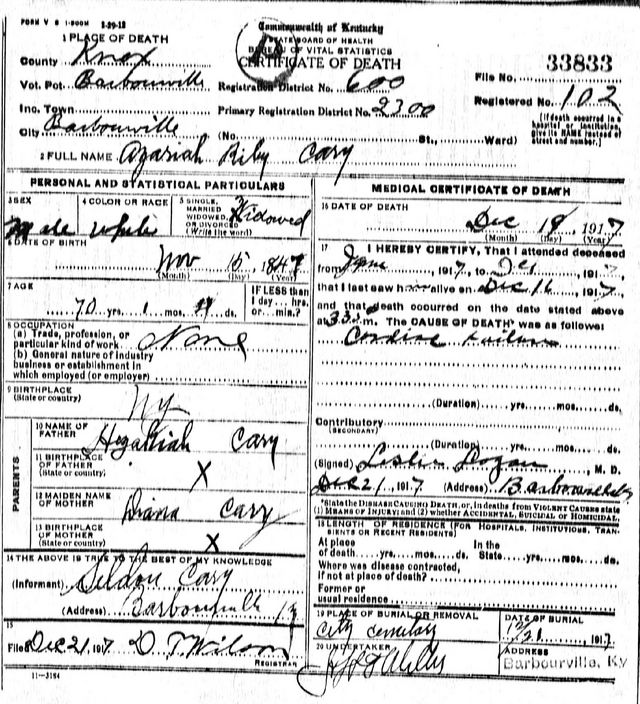 FORM V S 1-500M 1-29-12
Commonwealth of Kentucky
STATE BOARD OF HEALTH
BUREAU OF VITAL STATISTICS
CERTIFICATE OF DEATH
1 PLACE OF DEATH
County Knox
Vot. Pct. Barbourville
Inc. Town
City Barbourville
Registration District No. 600
Primary Registration District No. 2300
(No. St., Ward)
File No. 33833
Registered No. 102
(If death occurred in a hospital or institution, give its NAME instead of street and number.)
2 FULL NAME Azariah Riley Cary
PERSONAL AND STATISTICAL PARTICULARS
3 SEX Male
4 COLOR OR RACE White
5 SINGLE, MARRIED WIDOWED, OR DIVORCED (Write the word) Widowed
6 DATE OF BIRTH
Nov 15, 1847
(Month) (Day) (Year)
7 AGE
70 yrs. 1 mos. ds.
IF LESS than 1 day hrs. or min.?
8 OCCUPATION
(a) Trade, profession, or particular kind of work None
(b) General nature of industry business or establishment in which employed (or employer)
9 BIRTHPLACE
(State or country)
PARENTS
10 NAME OF FATHER Hezakiah Cary
11 BIRTHPLACE OF FATHER (State or country) X
12 MAIDEN NAME OF MOTHER Diana Cary
13 BIRTHPLACE OF MOTHER (State or country) X
14 THE ABOVE IS TRUE TO THE BEST OF MY KNOWLEDGE
(Informant) Seldon Cary
(Address) Barbourville Ky
15
Filed Dec 21, 1917 D. T. Wilson
REGISTRAR
11-3184
MEDICAL CERTIFICATE OF DEATH
16 DATE OF DEATH
Dec 19, 1917
(Month) (Day) (Year)
17 I HEREBY CERTIFY, That I attended deceased
from , 1917, to , 1917,
that I last saw h alive on Dec 16, 1917,
and that death occurred on the date stated above
at m. The CAUSE OF DEATH* was as follows:
Cardiac Failure
(Duration) yrs. mos. ds.
Contributory
(SECONDARY)
(Duration) yrs. mos. ds.
(Signed) Leslie Logan, M. D.
Dec 21, 1917 (Address) Barbourville Ky
*State the DISEASE CAUSING DEATH, or, in deaths from VIOLENT CAUSES state (1) MEANS OF INJURY; and (2) whether ACCIDENTAL, SUICIDAL or HOMICIDAL.
18 LENGTH OF RESIDENCE (FOR HOSPITALS, INSTITUTIONS, TRANSIENTS OR RECENT RESIDENTS)
At place of death yrs. mos. ds. In the State yrs. mos. ds.
Where was disease contracted, if not at place of death?
Former or usual residence
19 PLACE OF BURIAL OR REMOVAL
City Cemetary
DATE OF BURIAL
12/21, 1917
20 UNDERTAKER
ADDRESS
Barbourville, Ky